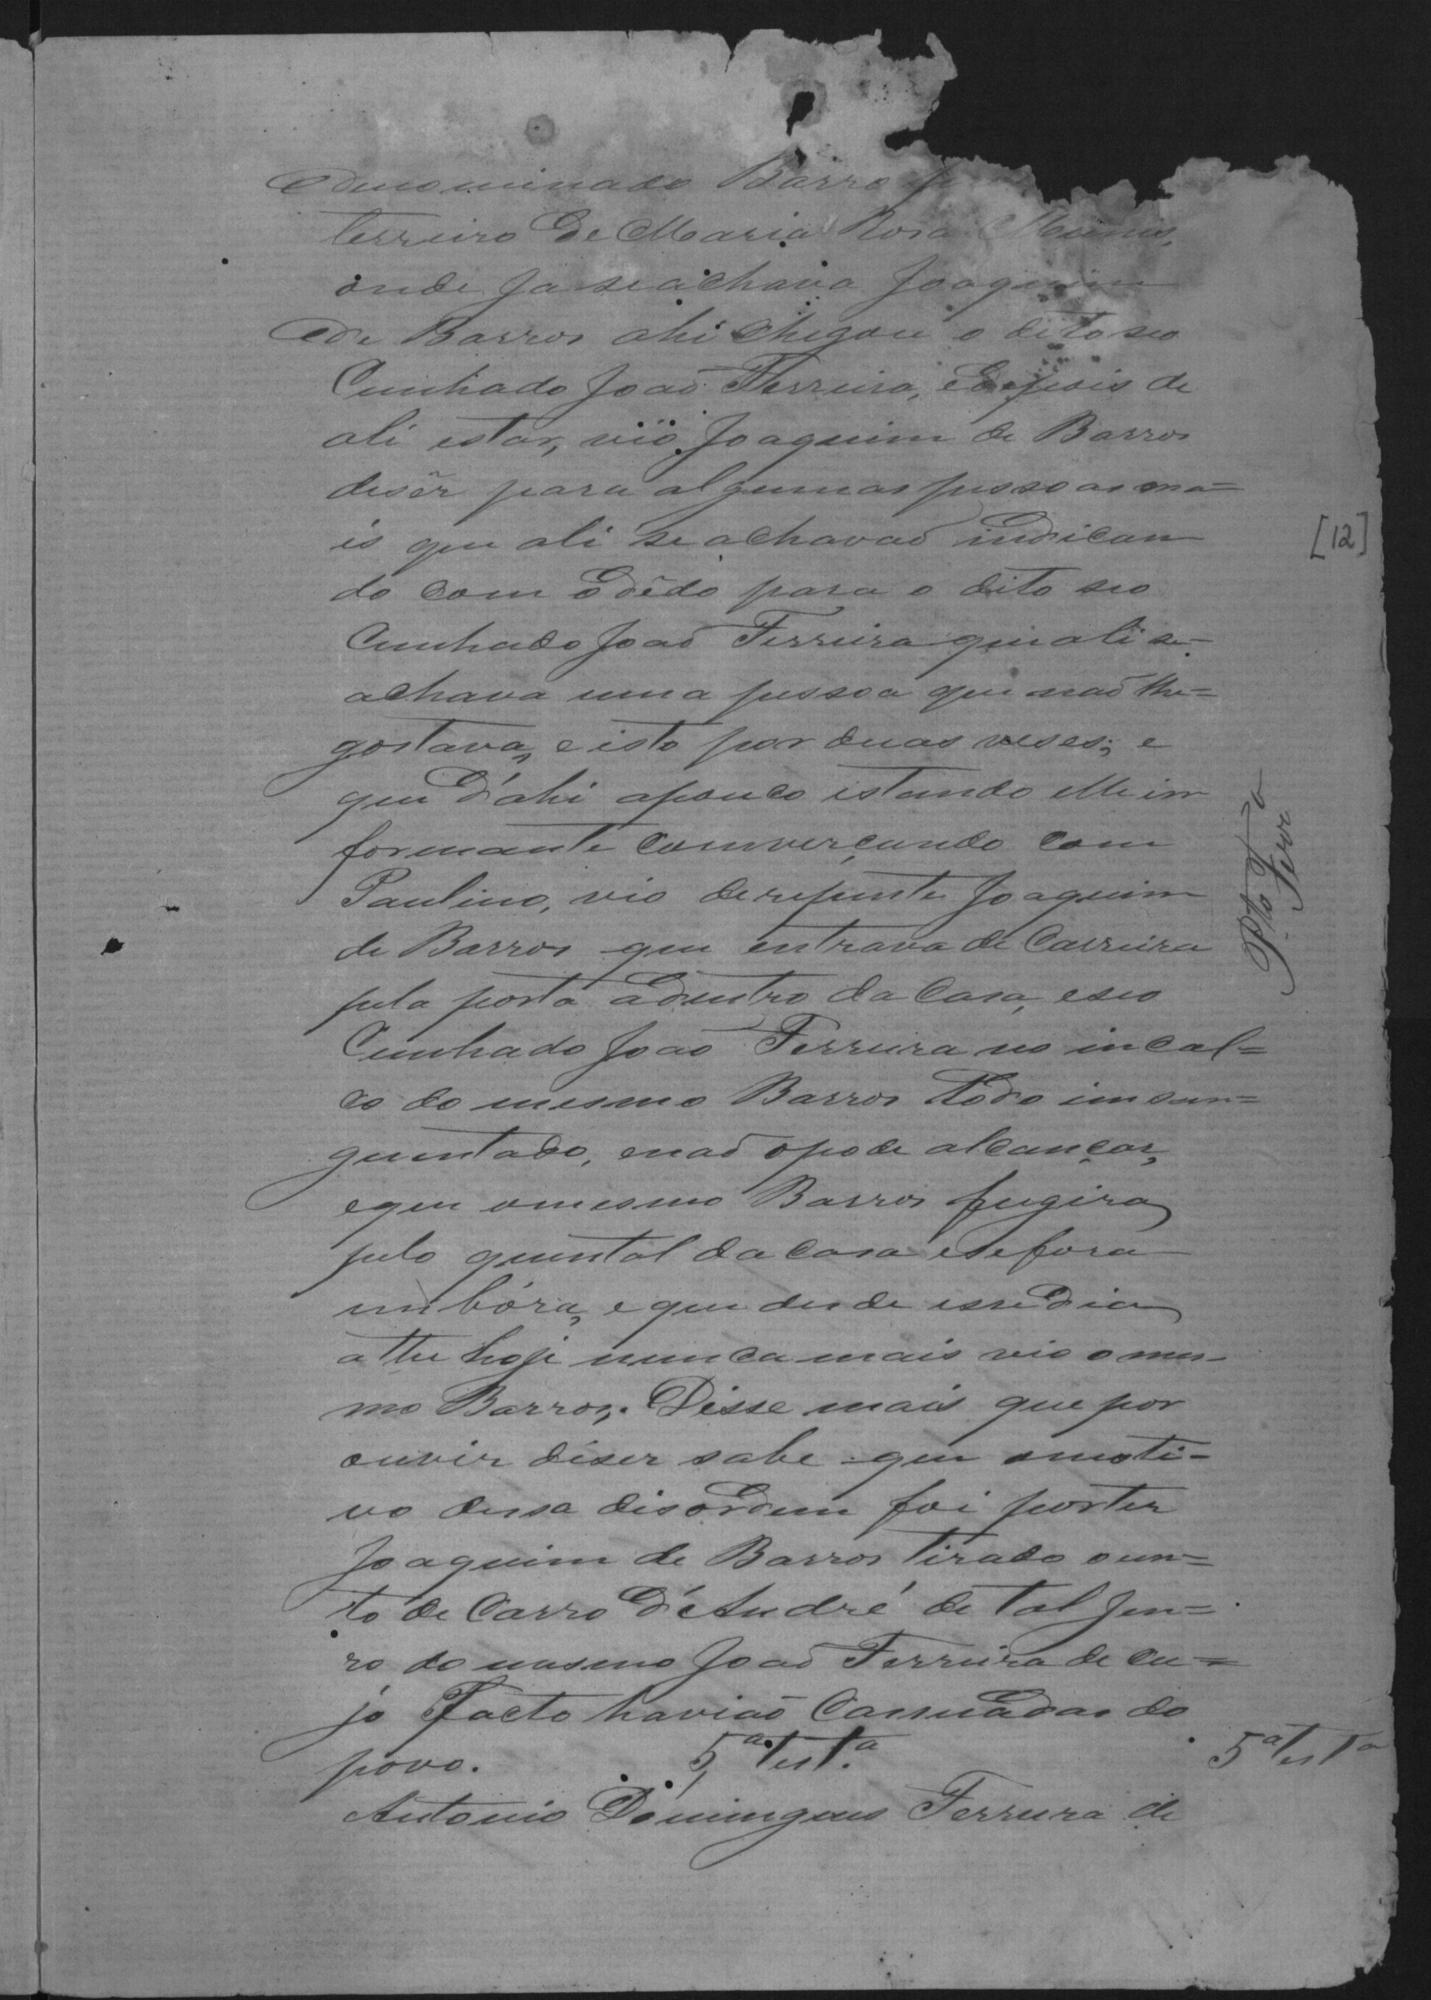 denominado Barro
terreiro de Maria Rosa
onde ja se achava Joaquim
de Barros ahi chegou o dito seo
Cunhado João Ferreira, e depois de
ali estar, vio Joaquim de Barros
disêr para algumas pessoas ma=
is que ali se achavaõ indican
do com o dêdo para o dito seo
Cunhado Joaõ Ferreira que ali se=
achava uma pessoa que naõ lhe=
gostava, e isto por duas veses; e
que d'ahi apouco estando elle in
formante comverçando com
Paulino, vio derepente Joaquim
de Barros que entrava de Carreira
pela porta adentro da Casa, e seo
Cunhado Joaõ Ferreira no incal=
ço do mesmo Barros todo insan=
guentado, e naõ o pode alcançar,
e que o mesmo Barros fugira
pelo quintal da Casa e se fora
imbóra, e que desde esse dia
athe hoje nunca mais vio o mes-
mo Barros. Disse mais que por
ouvir diser sabe que o moti-
vo dessa disordem foi por ter
Joaquim de Barros tirado o un=
to de Carro d'André de tal Jen=
ro do mesmo Joaõ Ferreira de cu=
jo facto haviaõ Cassuadas do
povo. 5ª test.ª
Antonio Domingues Ferreira de
[12]
5ª testª